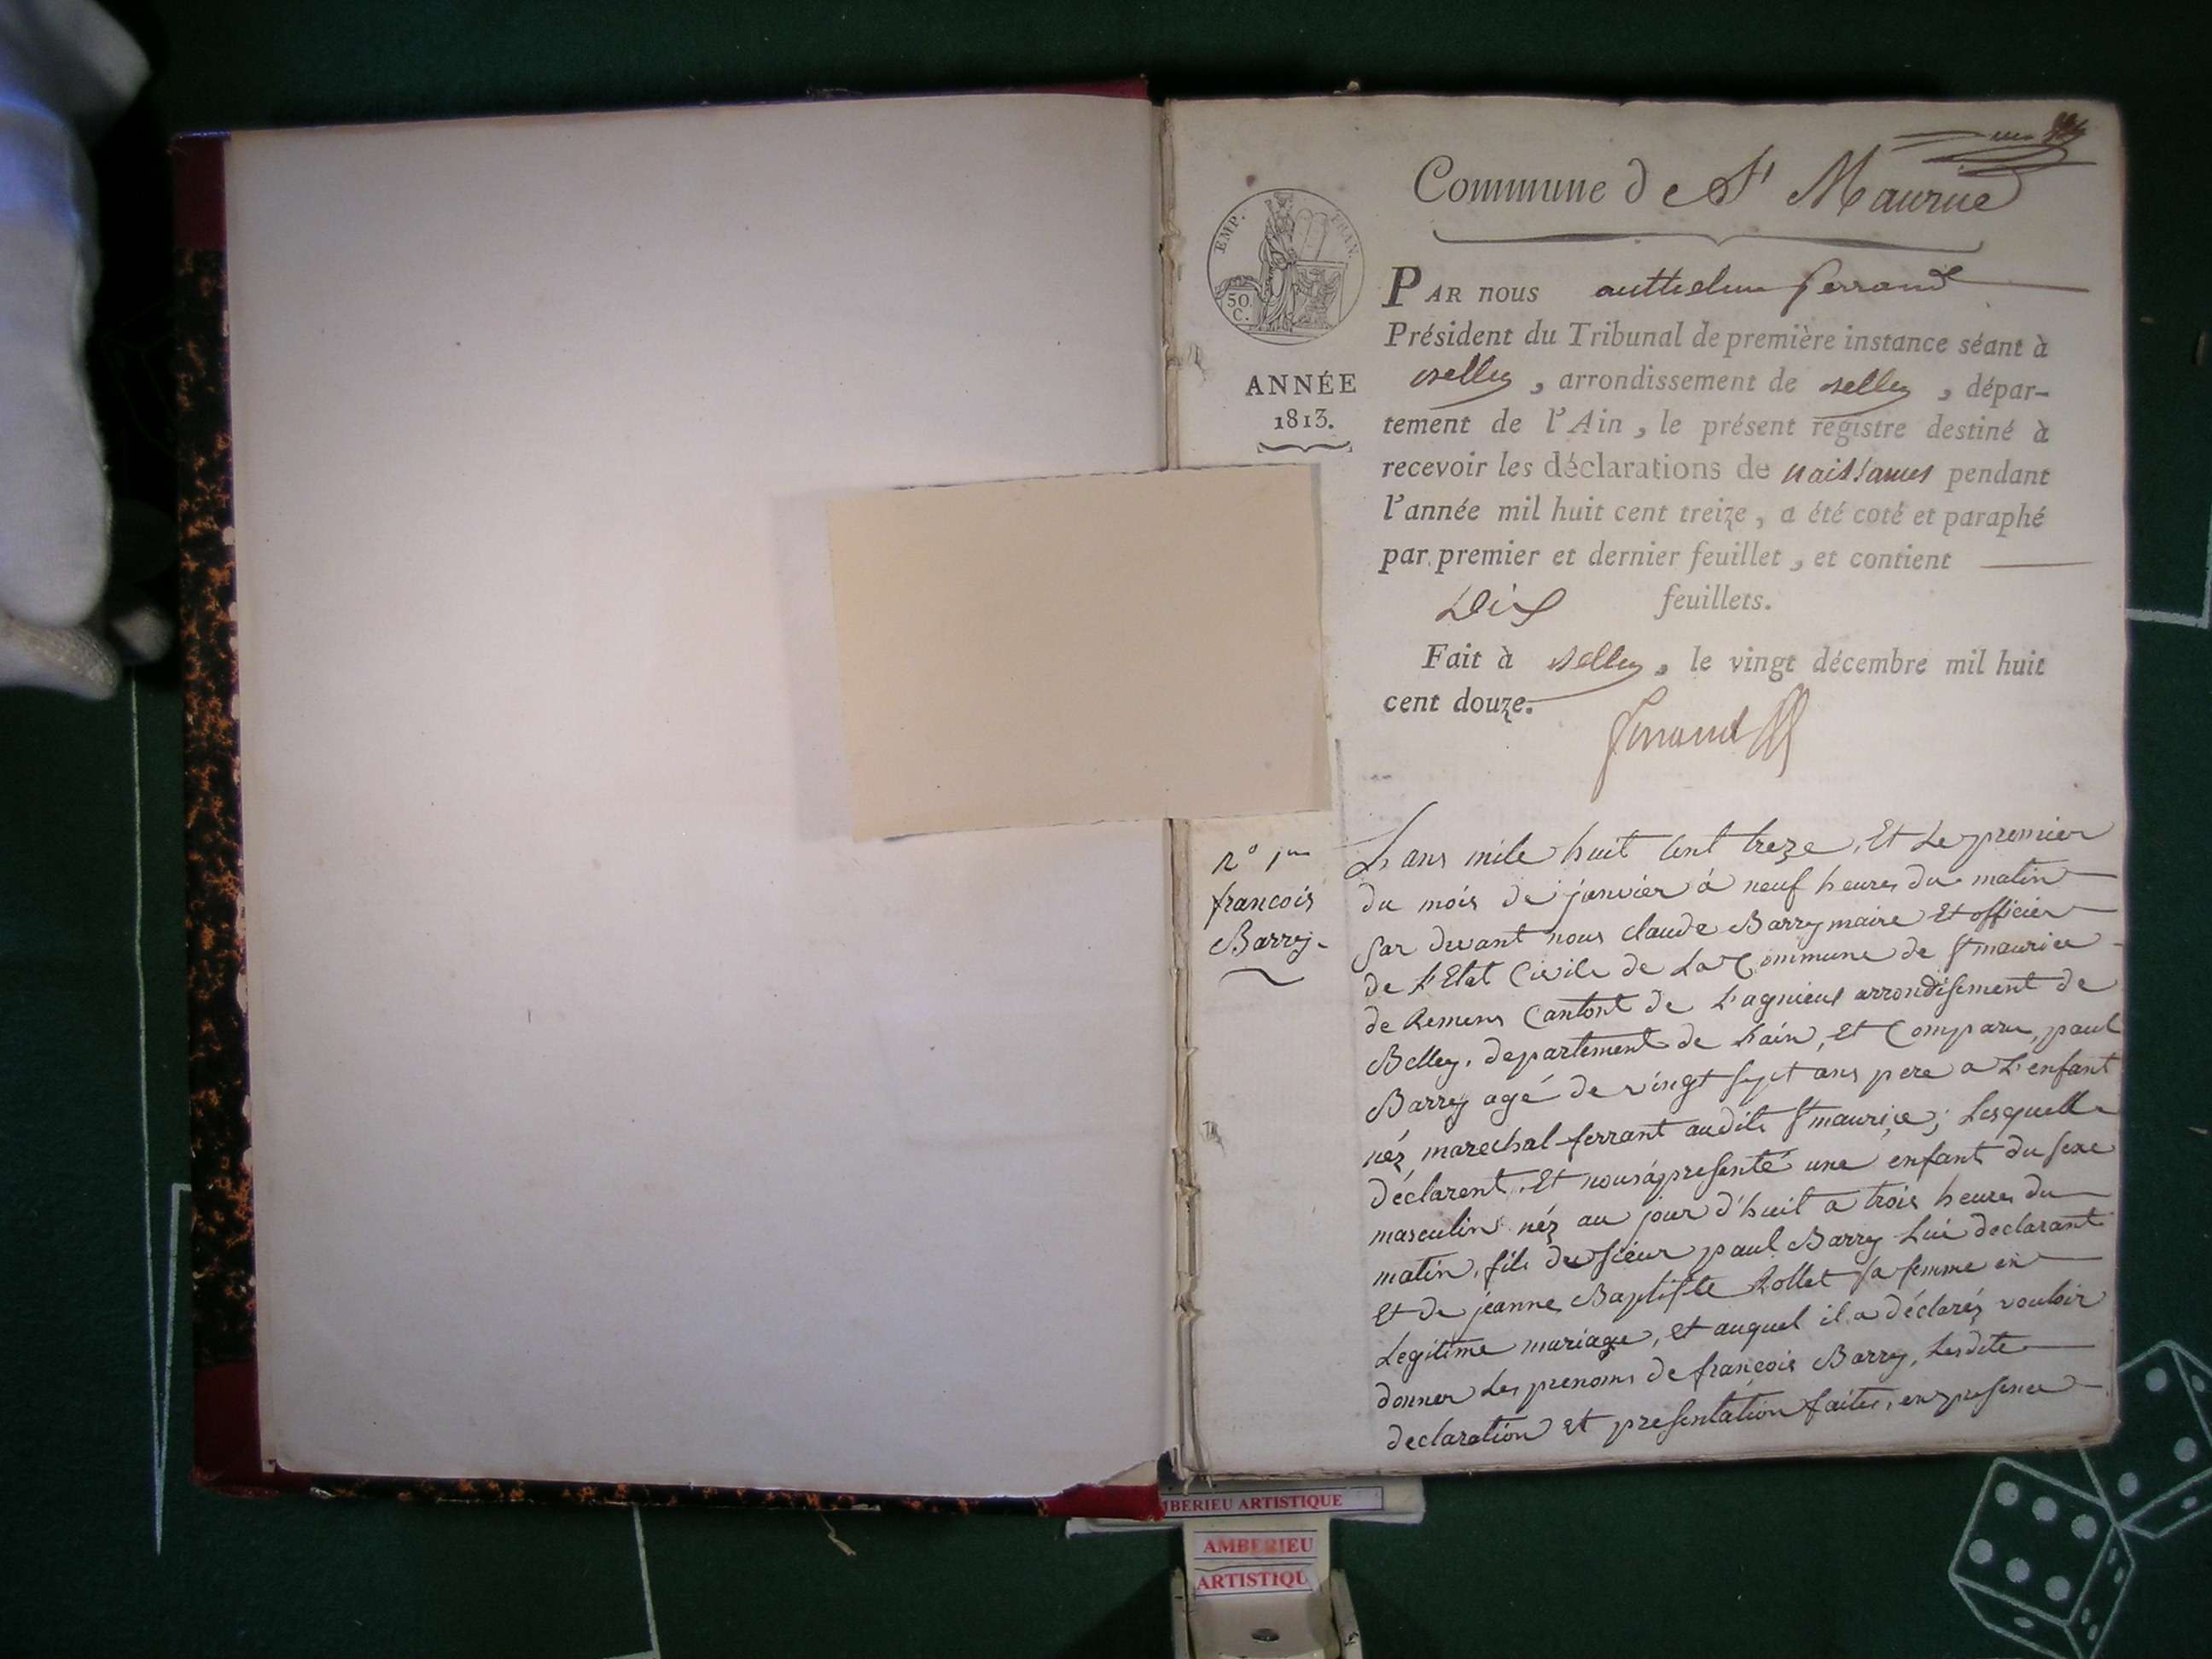 Commune de St Maurice
EMP. FRAN.
50.
C.
ANNÉE
1813.
PAR nous anthelme ferrand
Président du Tribunal de première instance séant à
Belley, arrondissement de Belley, dépar-
tement de l'Ain, le présent registre destiné à
recevoir les déclarations de naissances pendant
l'année mil huit cent treize, a été coté et paraphé
par premier et dernier feuillet, et contient
Dix feuillets.
Fait à Belley, le vingt décembre mil huit
cent douze.
ferrand
n° 1er
francois
Barrey
L'ans mile huit cent treze, Et Le premier
du mois de janvier à neuf heures du matin
par devant nous claude Barrey maire Et officier
de L'Etat Civile de La Commune de St maurice
de Remens Cantont de Lagnieux arrondisement de
Belley, departement de L'ain, et Comparu, paul
Barrey agé de vingt sept ans pere a L'enfant
néz, marechal-ferrant audite St maurice; Lesquelle
déclarent, Et nous á presenté une enfant du sexe
masculin néz au jour d'huit a trois heures du
matin, fils du sieur paul Barrey Lui declarant
Et de jeanne Baptiste Rollet sa femme en
Legitime mariage, et auquel il a déclaréz vouloir
donner Les prenoms de francois Barrey, Lesdite
declaration et presentation faites, en presence
MBERIEU ARTISTIQUE
AMBERIEU
ARTISTIQU